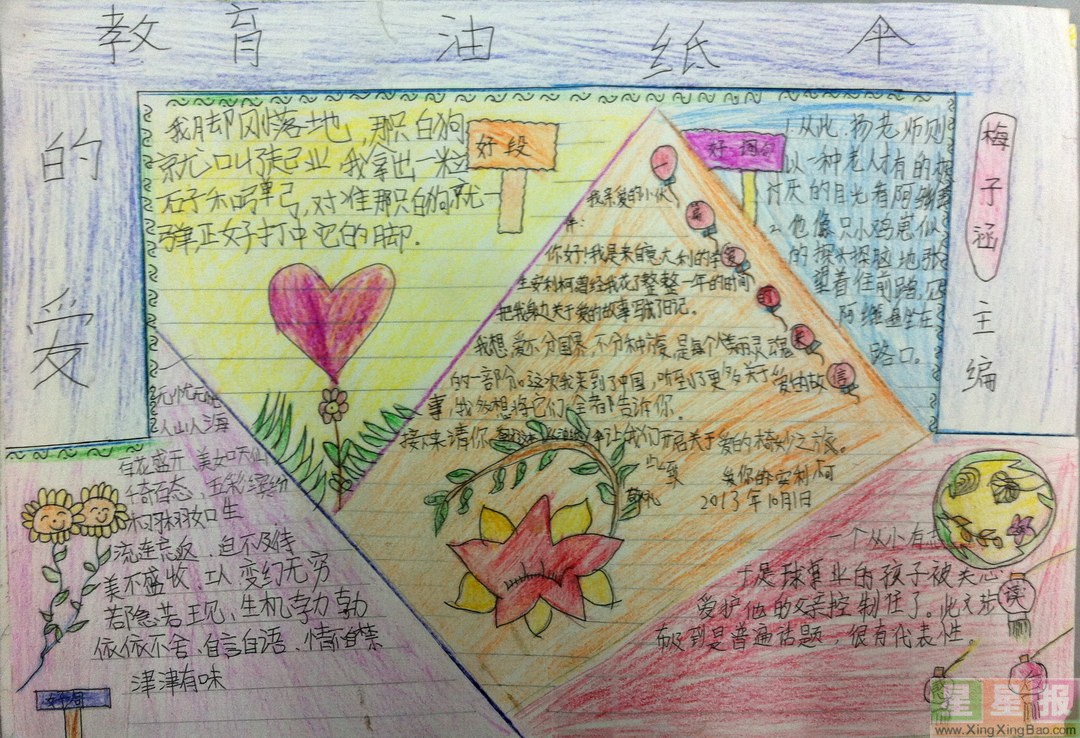 教育油纸伞
的爱
梅子涵
主编
我脚刚落地，那只白狗
就叫了起业，我拿出一粒
石子和吗单弓，对准那只白狗就
弹正好打中它的脚.
好段
好词句
1.从此，杨老师则
以一种老人才有的
讨厌的目光看阿维
2.他像只小鸡崽似
的探头探脑地张
望着往前路，见
阿维
路口。
一
我亲爱的小伙
伴：
你好！我是来自意大利的学
生安利柯曾经我花了整整一年的时间
把我身边关于爱的故事写成了日记。
我想，爱不分国界，不分种族，是每个情丽灵魂
的一部分。这次我来到了中国，听到了更多关于爱的故
事，我多想将它们全都告诉你。
接下来请你
让我们开启关于爱的
之旅。
此致
敬礼
安利柯
2013年10月1日
爱
的
来
信
无忧无
人山人海
百花盛开、美如
千奇百态、五彩缤纷
栩栩如生
流连忘返、迫不及待
美不盛收、变幻无穷
若隐若现、生机勃勃
依依不舍、自言自语、情不自禁
津津有味
读
一个从小有
于是
业的孩子被关心
爱护他的父亲控制住了。此文涉
及到是普遍话题，很有代表性。
星星报
www.XingXingBao.com